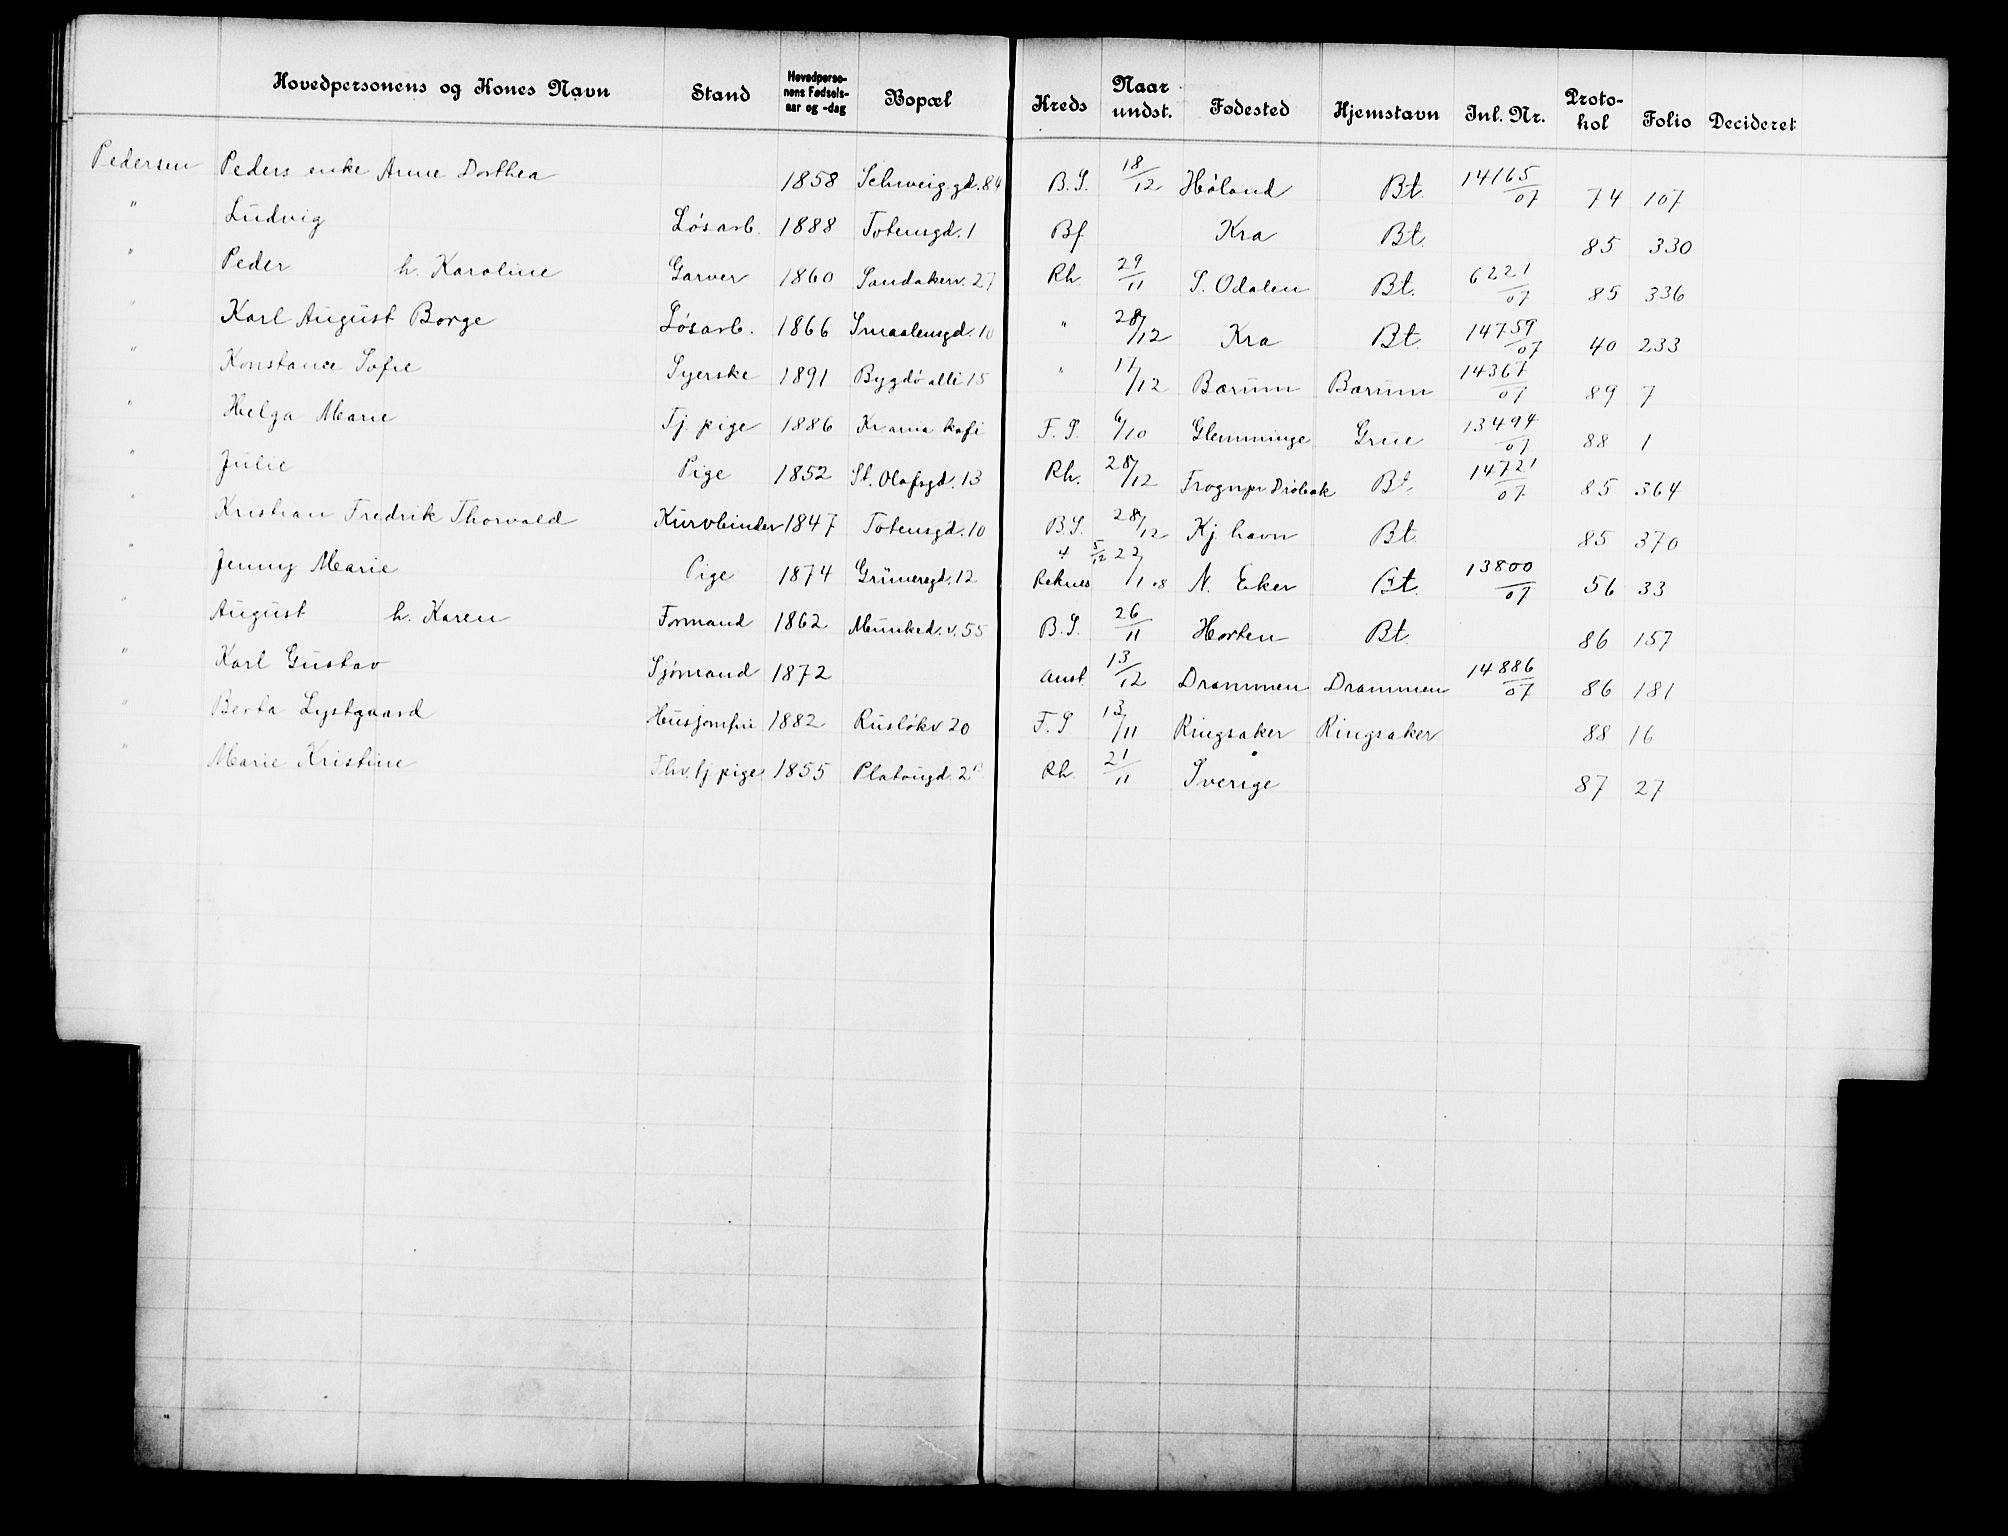 Hovedpersonens og Kones Navn Stand Hovedperso-nens Fødsels-aar og -dag Bopæl Kreds Naar undst. Fødested Hjemstavn Inl. Nr. Proto-kol Folio Decideret
Pedersen Peders enke Anne Dorthea 1858 Schweig.gd. 84 B.S. 18/12 Høland Bt. 14165/07 74 107
" Ludvig Løsarb. 1888 Totensgd. 1 Bf Kra Bt. 85 330
" Peder h. Karoline Garver 1860 Sandakerv. 27 Rh. 29/11 S. Odalen Bt. 6221/07 85 336
" Karl August Borge Løsarb. 1866 Smaalensgd. 10 " 28/12 Kra Bt. 14759/07 40 233
" Konstance Sofie Syerske 1891 Bygdø alle 15 " 17/12 Bærum Bærum 14367/07 89 7
" Helga Marie Tj. pige 1886 Krania kafe F.S. 6/10 Glemminge Grue 13494/07 88 1
" Julie Pige 1852 St. Olafsgd. 13 Rh. 28/12 Frogn pr Drøbak Bt. 14721/07 85 364
" Kristian Fredrik Thorvald Kurvbinder 1847 Totensgd. 10 B.S. 28/12 Kj.havn Bt. 85 370
" Jenny Marie Pige 1874 Grünersgd. 12 4 Reknes 5/12 22/1 08 N. Eker Bt. 13800/07 56 33
" August h. Karen Formand 1862 Munked.v. 55 B.S. 26/11 Horten Bt. 86 157
" Karl Gustav Sjømand 1872 anst. 13/12 Drammen Drammen 14886/07 86 181
" Berta Lystgaard Husjomfru 1882 Rusløkv 20 F.S 13/11 Ringsaker Ringsaker 88 16
" Marie Kristine Fhv. tj pige 1855 Platougd. 2 Rh. 21/11 Sverige 87 27